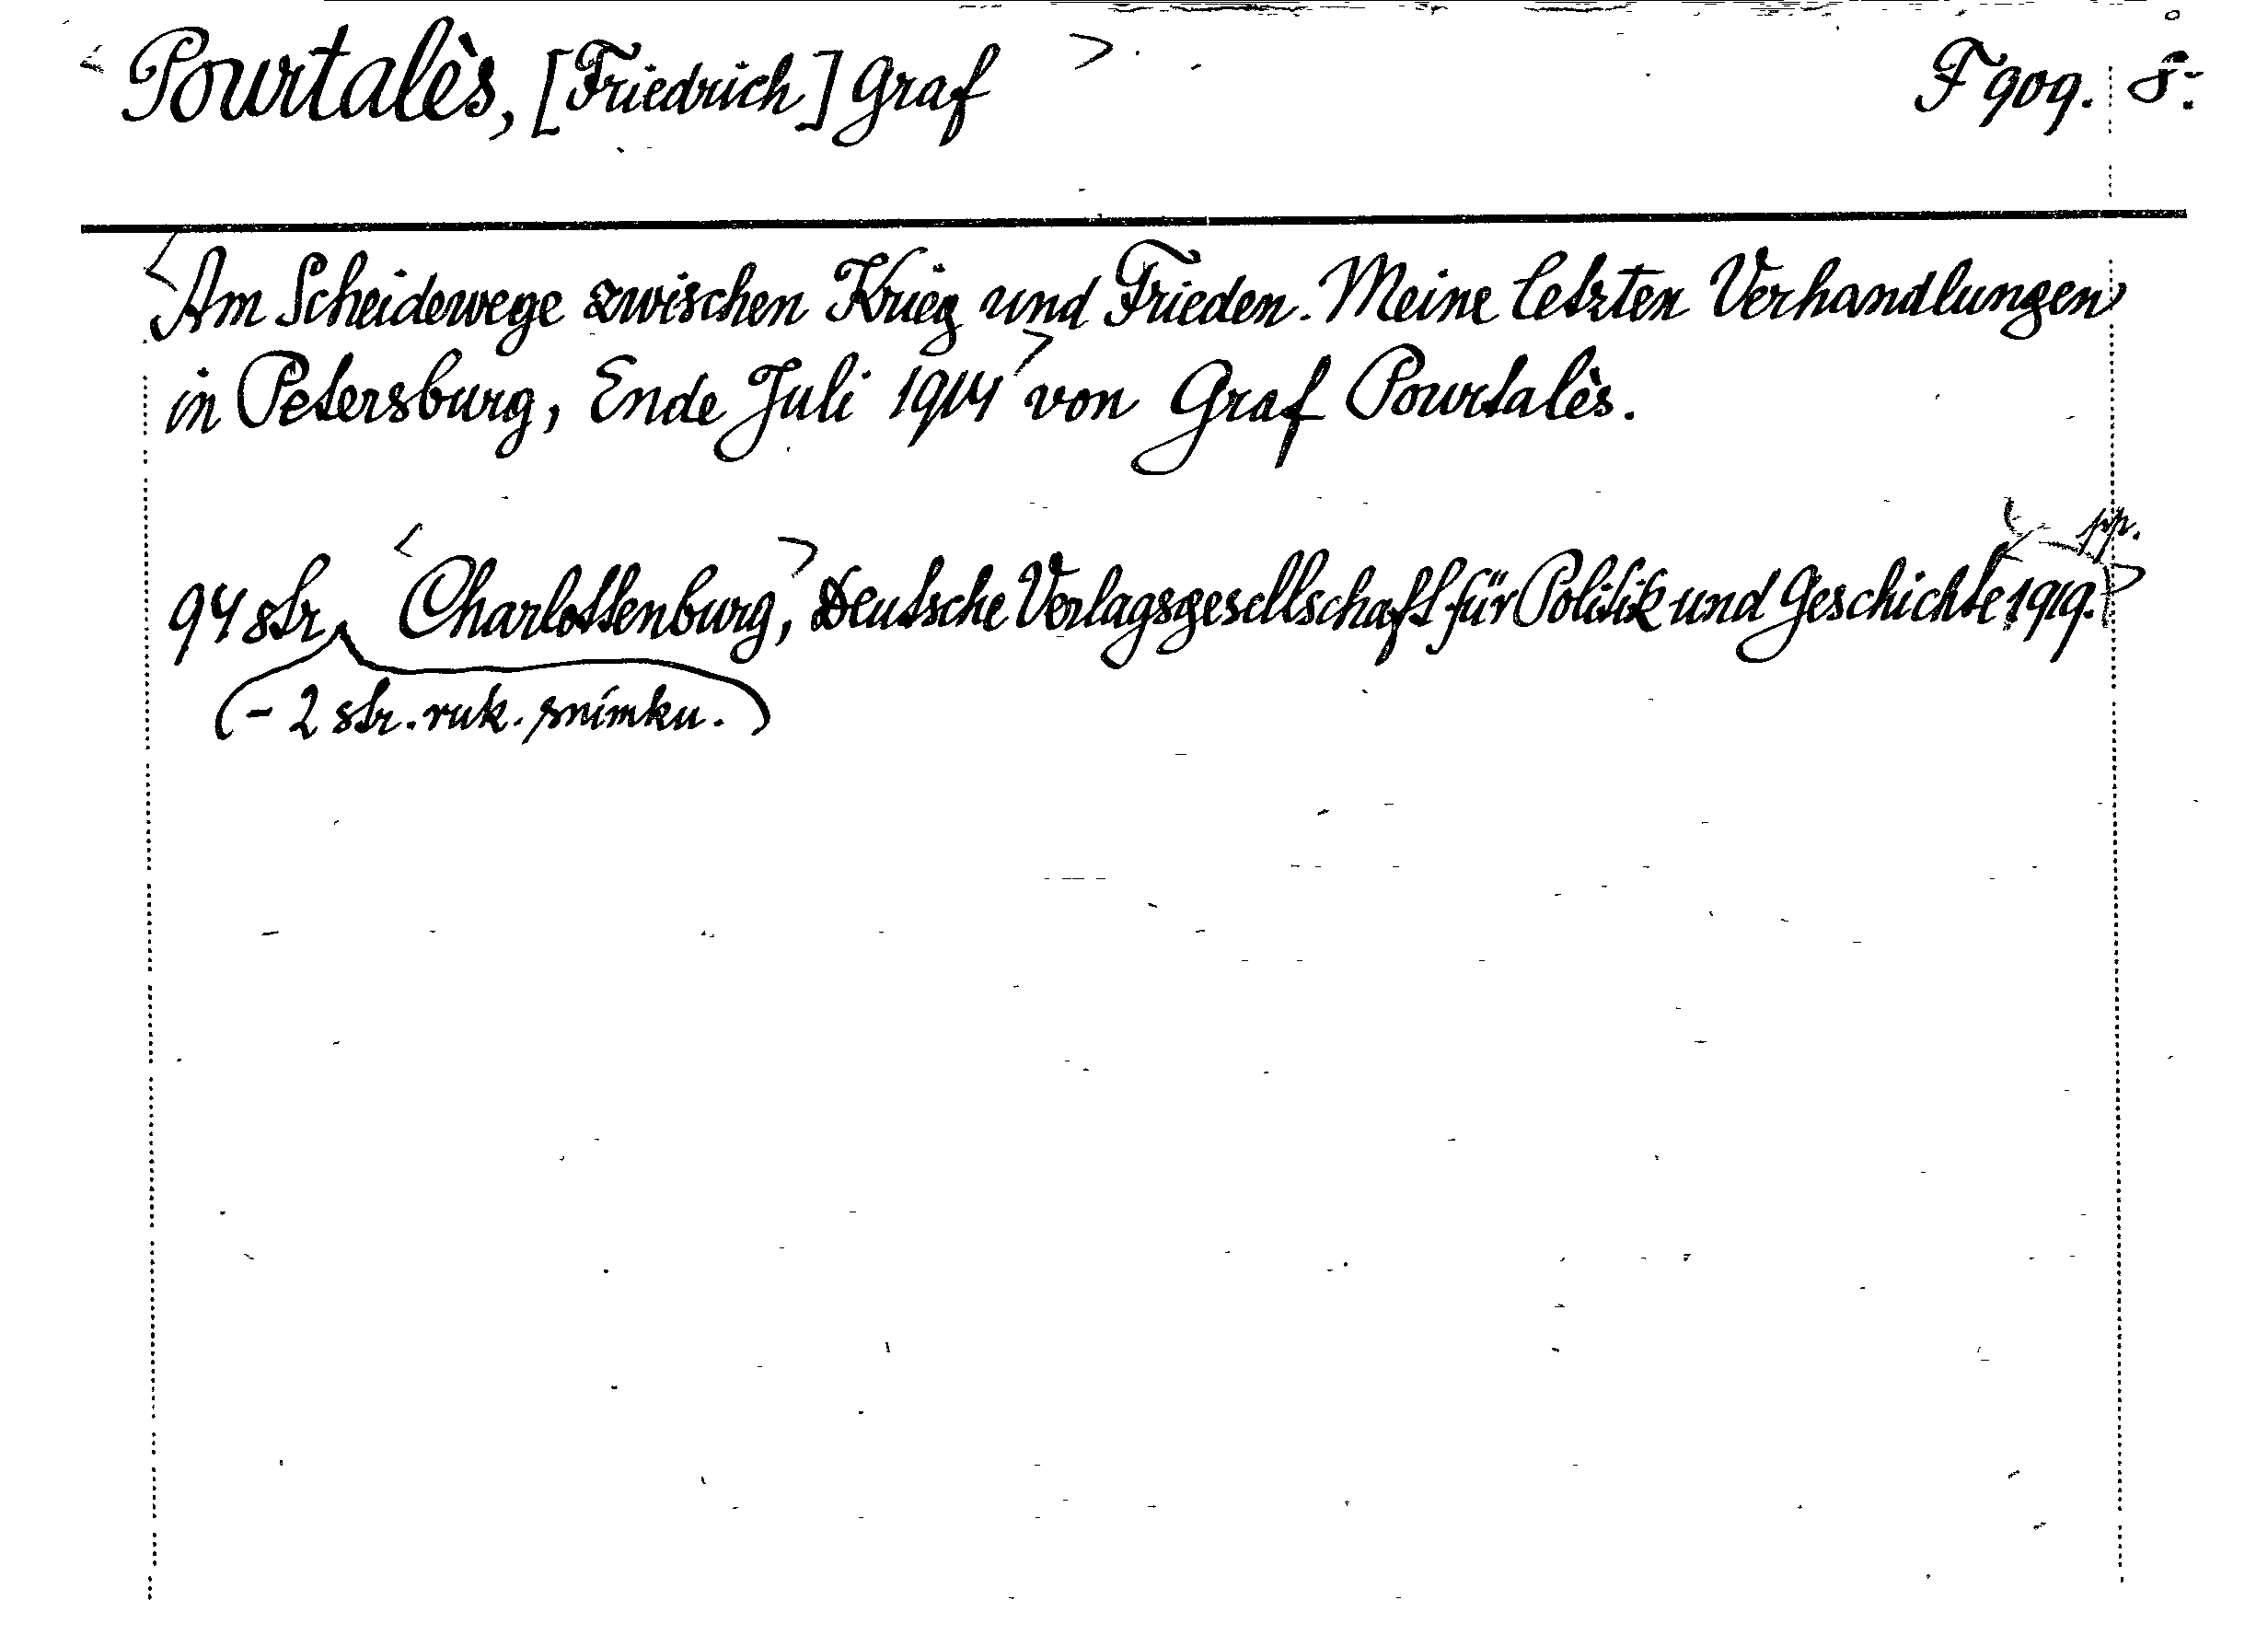 <Pourtalès, [Friedrich] Graf>. F 909. 8°:
<Am Scheidewege zwischen Krieg und Frieden. Meine letzten Verhandlungen
in Petersburg, Ende Juli 1914> von Graf Pourtalès.
pp.
94 str, <Charlottenburg>, Deutsche Verlagsgesellschaft für Politik und Geschichte <1919.>
(- 2 str. ruk. snímku.)